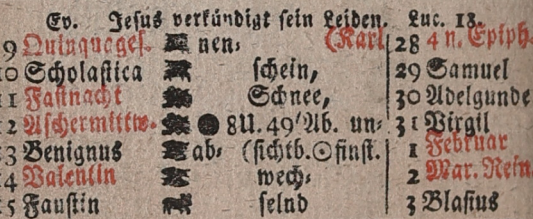 Ev. Jesus verkündigt sein Leiden. Luc. 18.
9 Quinquages. nen= (Karl 28 4 n. Epiph.
10 Scholastica schein, 29 Samuel
11 Fastnacht Schnee, 30 Adelgunde
12 Aschermittw. 8U. 49'Ab. un= 31 Virgil
13 Benignus ab= (sichtb. ☉finst. 1 Februar
14 Valentin wech= 2 Mar. Rein.
15 Faustin selnd 3 Blasius